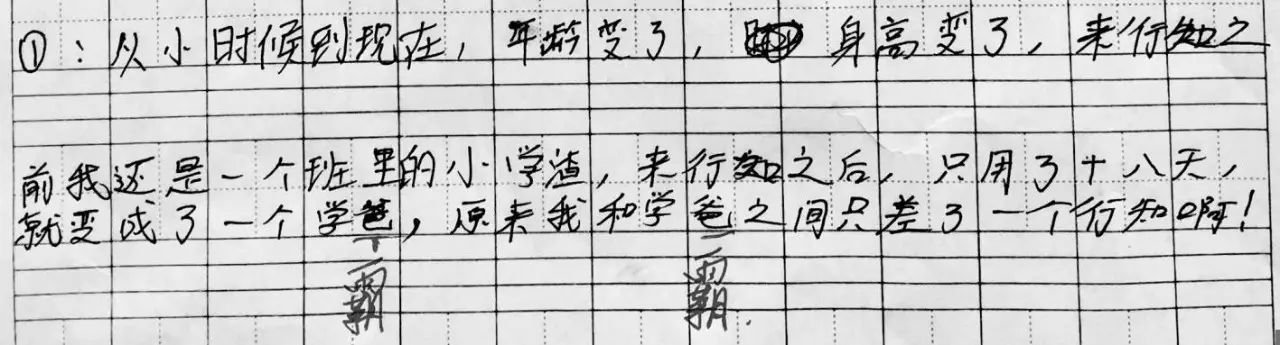 ①：从小时候到现在，年龄变了，身高变了，来行知之
前我还是一个班里的小学渣，来行知之后，只用了十八天，
就变成了一个学爸，原来我和学爸之间只差了一个行知啊！
霸 霸